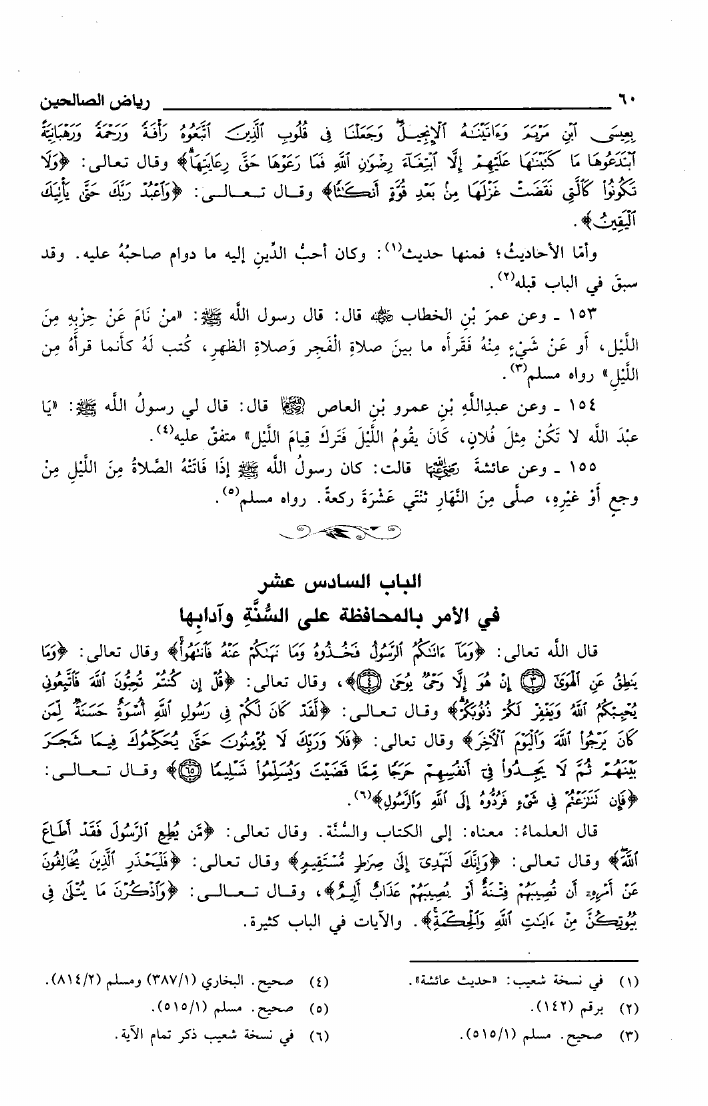 ٦٠ رياض الصالحين
بِعِيسَى ٱبْنِ مَرْيَمَ وَءَاتَيْنَٰهُ ٱلْإِنجِيلَ وَجَعَلْنَا فِى قُلُوبِ ٱلَّذِينَ ٱتَّبَعُوهُ رَأْفَةً وَرَحْمَةً وَرَهْبَانِيَّةً
ٱبْتَدَعُوهَا مَا كَتَبْنَٰهَا عَلَيْهِمْ إِلَّا ٱبْتِغَآءَ رِضْوَٰنِ ٱللَّهِ فَمَا رَعَوْهَا حَقَّ رِعَايَتِهَا﴾ وقال تعالى: ﴿وَلَا
تَكُونُوا۟ كَٱلَّتِى نَقَضَتْ غَزْلَهَا مِنۢ بَعْدِ قُوَّةٍ أَنكَٰثًا﴾ وقال تعالى: ﴿وَٱعْبُدْ رَبَّكَ حَتَّىٰ يَأْتِيَكَ
ٱلْيَقِينُ﴾.
وأمّا الأحاديثُ؛ فمنها حديث(١): وكان أحبُّ الدِّينِ إليه ما دوام صاحبُهُ عليه. وقد
سبقَ في الباب قبله(٢).
١٥٣ ـ وعن عمرَ بْنِ الخطاب ﷺ قال: قال رسول الله ﷺ: «منْ نَامَ عَنْ حِزْبِهِ مِنَ
اللَّيْل، أو عَنْ شَيْءٍ مِنْهُ فَقَرأه ما بينَ صلاةِ الْفَجر وَصلاةِ الظهرِ، كُتب لَهُ كأنما قرأهُ مِن
اللَّيْلِ» رواه مسلم(٣).
١٥٤ ـ وعن عبداللَّهِ بْنِ عمرو بْنِ العاص رضي الله عنهما قال: قال لي رسولُ الله ﷺ: «يَا
عبْدَ الله لا تَكُنْ مِثلَ فُلانٍ، كَانَ يقُومُ اللَّيْلَ فَتَركَ قِيامَ اللَّيْل» متفقٌ عليه(٤).
١٥٥ ـ وعن عائشةَ رضي الله عنها قالت: كان رسولُ الله ﷺ إذَا فَاتَتْهُ الصَّلاةُ مِنَ اللَّيْلِ مِنْ
وجعٍ أَوْ غيْرِهِ، صلَّى مِنَ النَّهَارِ ثنْتَي عَشْرَةَ ركعةً. رواه مسلم(٥).
الباب السادس عشر
في الأمر بالمحافظة على السُّنَّةِ وآدابِها
قال الله تعالى: ﴿وَمَآ ءَاتَىٰكُمُ ٱلرَّسُولُ فَخُذُوهُ وَمَا نَهَىٰكُمْ عَنْهُ فَٱنتَهُوا۟﴾ وقال تعالى: ﴿وَمَا
يَنطِقُ عَنِ ٱلْهَوَىٰٓ ٣ إِنْ هُوَ إِلَّا وَحْىٌ يُوحَىٰ ٤﴾، وقال تعالى: ﴿قُلْ إِن كُنتُمْ تُحِبُّونَ ٱللَّهَ فَٱتَّبِعُونِى
يُحْبِبْكُمُ ٱللَّهُ وَيَغْفِرْ لَكُمْ ذُنُوبَكُمْ﴾ وقال تعالى: ﴿لَّقَدْ كَانَ لَكُمْ فِى رَسُولِ ٱللَّهِ أُسْوَةٌ حَسَنَةٌ لِّمَن
كَانَ يَرْجُوا۟ ٱللَّهَ وَٱلْيَوْمَ ٱلْءَاخِرَ﴾ وقال تعالى: ﴿فَلَا وَرَبِّكَ لَا يُؤْمِنُونَ حَتَّىٰ يُحَكِّمُوكَ فِيمَا شَجَرَ
بَيْنَهُمْ ثُمَّ لَا يَجِدُوا۟ فِىٓ أَنفُسِهِمْ حَرَجًا مِّمَّا قَضَيْتَ وَيُسَلِّمُوا۟ تَسْلِيمًا ٦٥﴾ وقال تعالى:
﴿فَإِن تَنَٰزَعْتُمْ فِى شَىْءٍ فَرُدُّوهُ إِلَى ٱللَّهِ وَٱلرَّسُولِ﴾(٦).
قال العلماءُ: معناه: إلى الكتاب والسُّنَّة. وقال تعالى: ﴿مَّن يُطِعِ ٱلرَّسُولَ فَقَدْ أَطَاعَ
ٱللَّهَ﴾ وقال تعالى: ﴿وَإِنَّكَ لَتَهْدِىٓ إِلَىٰ صِرَٰطٍ مُّسْتَقِيمٍ﴾ وقال تعالى: ﴿فَلْيَحْذَرِ ٱلَّذِينَ يُخَالِفُونَ
عَنْ أَمْرِهِۦٓ أَن تُصِيبَهُمْ فِتْنَةٌ أَوْ يُصِيبَهُمْ عَذَابٌ أَلِيمٌ﴾، وقال تعالى: ﴿وَٱذْكُرْنَ مَا يُتْلَىٰ فِى
بُيُوتِكُنَّ مِنْ ءَايَٰتِ ٱللَّهِ وَٱلْحِكْمَةِ﴾. والآيات في الباب كثيرة.
(١) في نسخة شعيب: «حديث عائشة».
(٢) برقم (١٤٢).
(٣) صحيح. مسلم (٥١٥/١).
(٤) صحيح. البخاري (٣٨٧/١) ومسلم (٨١٤/٢).
(٥) صحيح. مسلم (٥١٥/١).
(٦) في نسخة شعيب ذكر تمام الآية.